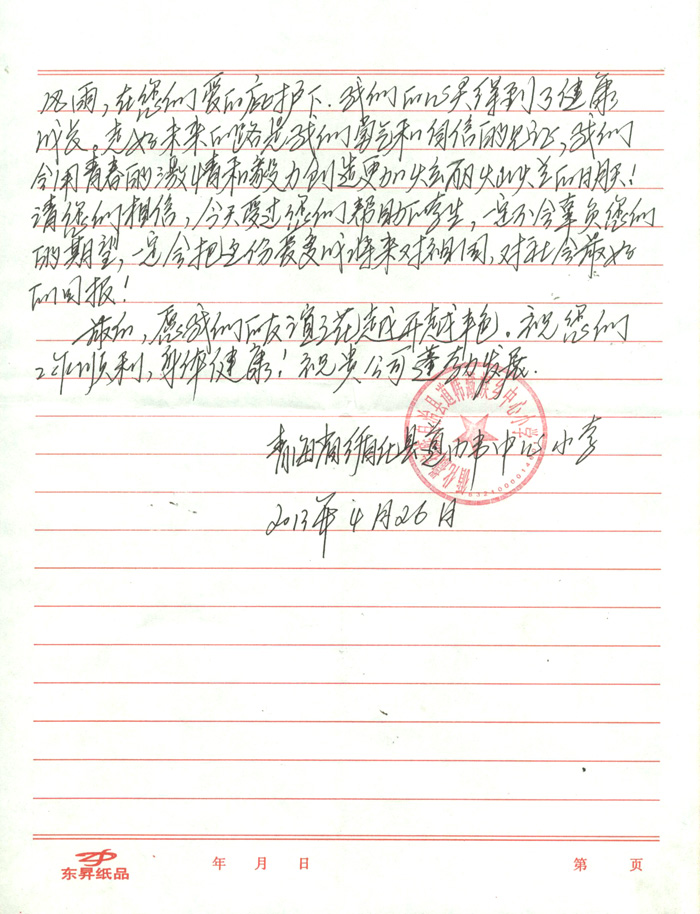 风雨，在您们爱的庇护下．我们的心灵得到了健康
成长。走好未来的路是我们勇气和自信的见证，我们
会用青春的激情和毅力创造更加炫丽灿烂的明天！
请您们相信，今天受过您们帮助的学生，一定不会辜负您们
的期望，一定会把这份爱变成将来对祖国，对社会最好
的回报！
最后，愿我们的友谊之花越开越丰色．祝您们
工作顺利，身体健康！祝贵公司蓬勃发展．
青海省循化县道帏中心小学
2013年4月26日
循化撒拉族自治县道帏藏族乡中心小学
东昇纸品
年 月 日
第 页